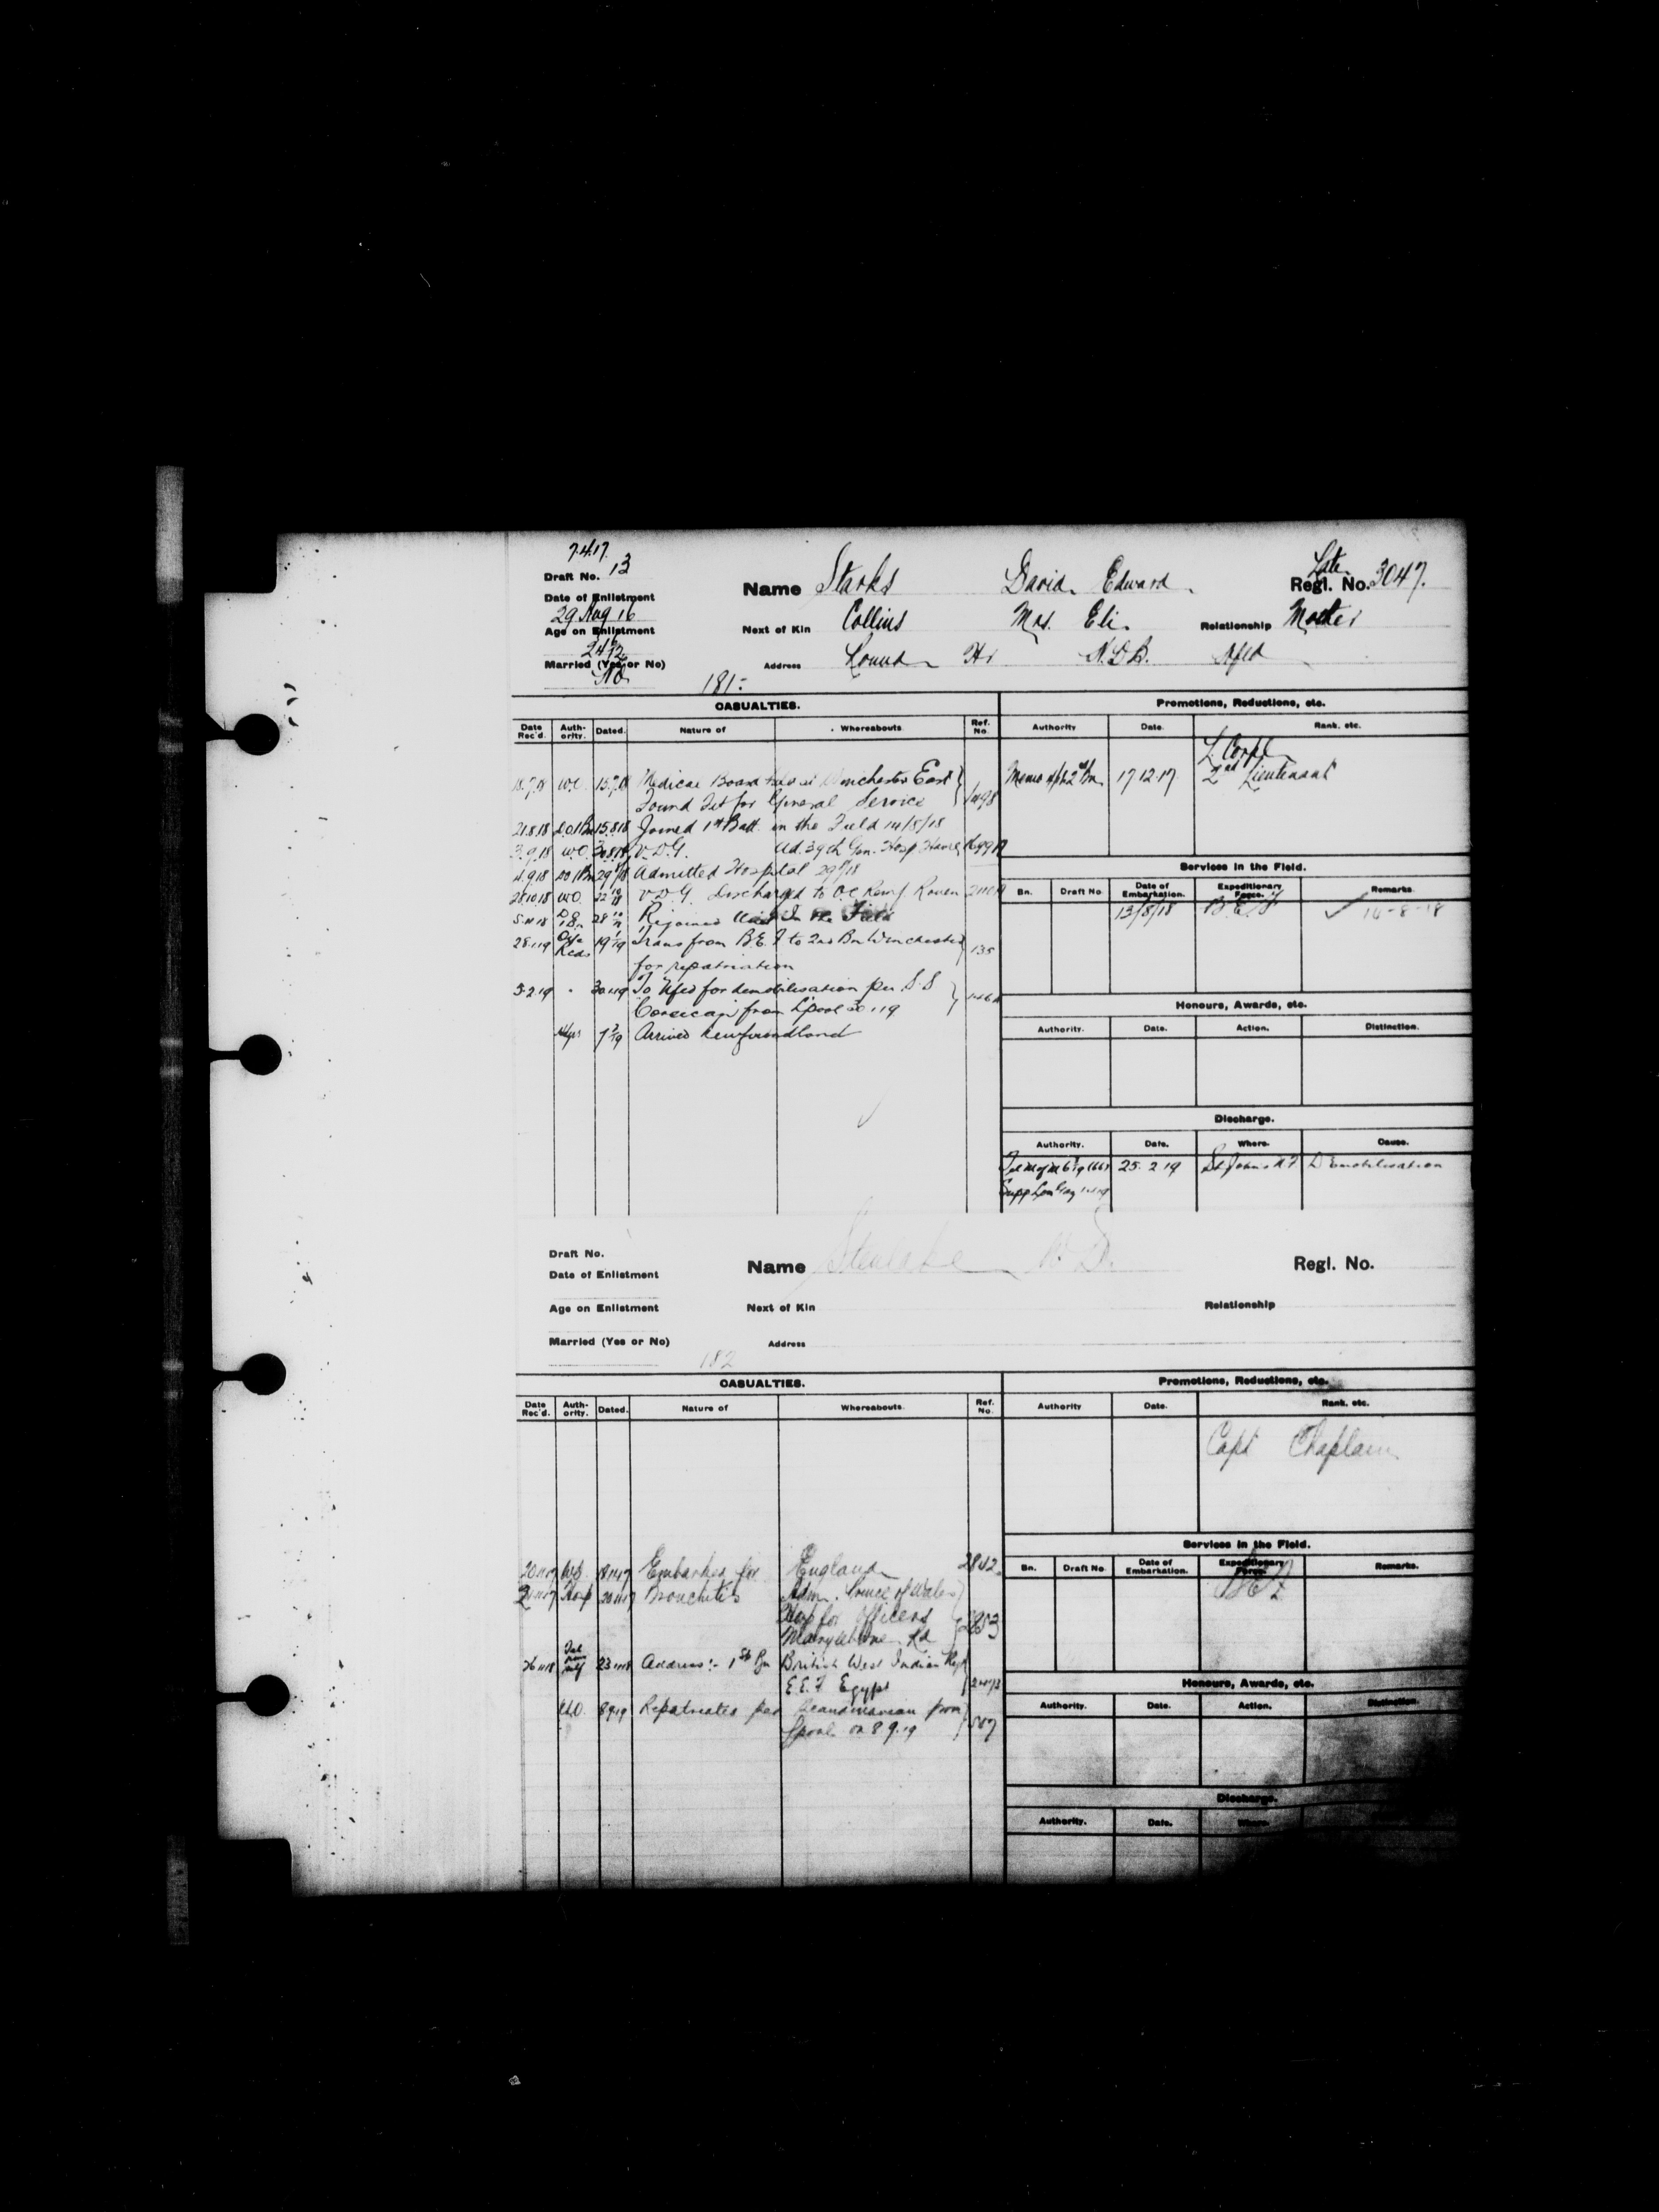 7.4.17.
Draft No. 13
Date of Enlistment
29 Aug 16
Age on Enlistment
Married (Yes or No)
No
Name Starks David Edward
Late
Regl. No. 3047.
Next of Kin Collins Mrs. Eli. Relationship Mother
Address Round Hr N.D.B. Nfld
181
CASUALTIES.
Promotions, Reductions, etc.
Date Rec'd. Authority. Dated. Nature of Whereabouts Ref. No.
Authority Date. Rank, etc.
L. Corpl
18.7.18 W.O. 13.7.18 Medical Board held at Winchester East
Found Fit for General Service
17.12.17 2nd Lieutenant
21.8.18 15.8.18 Joined 1st Batt. in the Field 14/8/18
3.9.18 W.O. 30.8.18 V.D.G. Ad. 39th Gen. Hosp Havre
4.9.18 Admitted Hospital
28.10.18 W.O. V.D.G. Discharged to O.C. Reinf Rouen
5.11.18 Rejoined Unit In the Field
28.1.19 Trans from B.E.F to 2nd Bn Winchester 135
for repatriation
3.2.19 30.1.19 To Nfld for demobilisation per S.S
Corsican from L'pool 30.1.19
Arrived Newfoundland
Services in the Field.
Bn. Draft No. Date of Embarkation. Expeditionary Force. Remarks.
13/8/18 B.E.F ✓ 14-8-18
Honours, Awards, etc.
Authority. Date. Action. Distinction.
Discharge.
Authority. Date. Where. Cause.
25.2.19 St Johns N.F Demobilisation
Draft No.
Date of Enlistment
Age on Enlistment
Married (Yes or No)
Name
Regl. No.
Next of Kin Relationship
Address
182
CASUALTIES.
Promotions, Reductions, etc.
Date Rec'd. Authority. Dated. Nature of Whereabouts. Ref. No.
Authority Date. Rank, etc.
Capt Chaplain
Embarked for England 2842
Hosp Bronchitis Adm. Prince of Wales
Hosp for Officers
Marylebone Rd
Address:- 1st Bn British West Indian Regt
E.E.F Egypt
W.O. 8.9.19 Repatriated per Scandinavian from
L'pool on 8.9.19
Services in the Field.
Bn. Draft No. Date of Embarkation. Expeditionary Force. Remarks.
BEF
Honours, Awards, etc.
Authority. Date. Action. Distinction.
Discharge.
Authority. Date. Where.